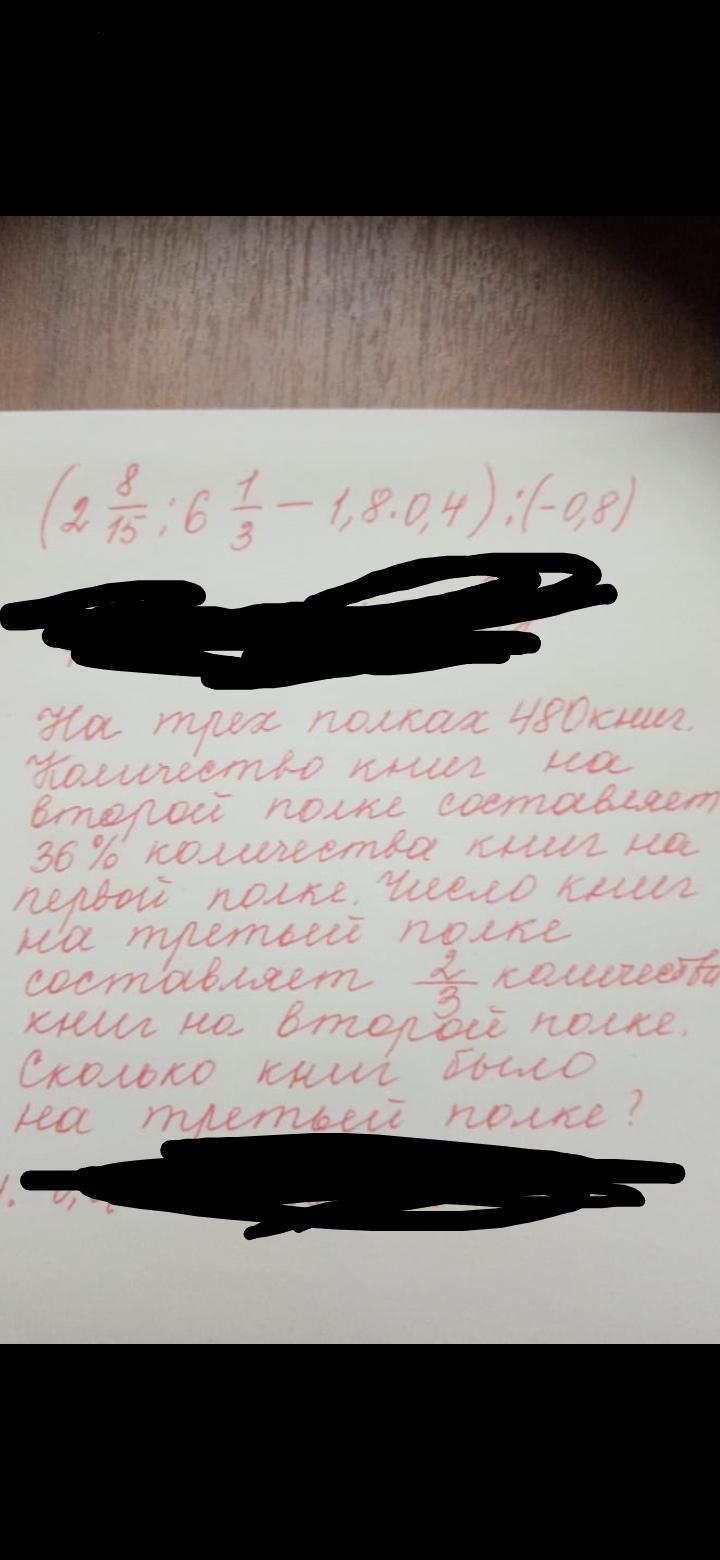 (2 8/15 : 6 1/3 - 1,8 · 0,4) : (-0,8)
На трех полках 480 книг.
Количество книг на
второй полке составляет
36% количества книг на
первой полке. Число книг
на третьей полке
составляет 2/3 количества
книг на второй полке.
Сколько книг было
на третьей полке?